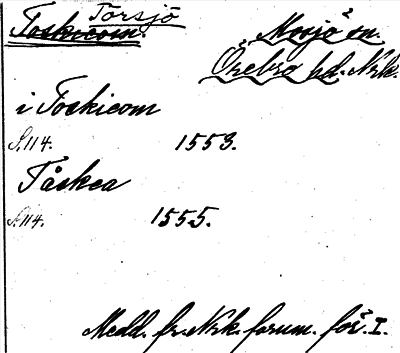 Torsjö
Toskicom. Mosjö sn.
Örebro hd. Nrk.
i Toskicom
S. 114. 1553.
Tåskea
S. 114. 1555.
Medd. fr. Nrk. fornm. för. I.